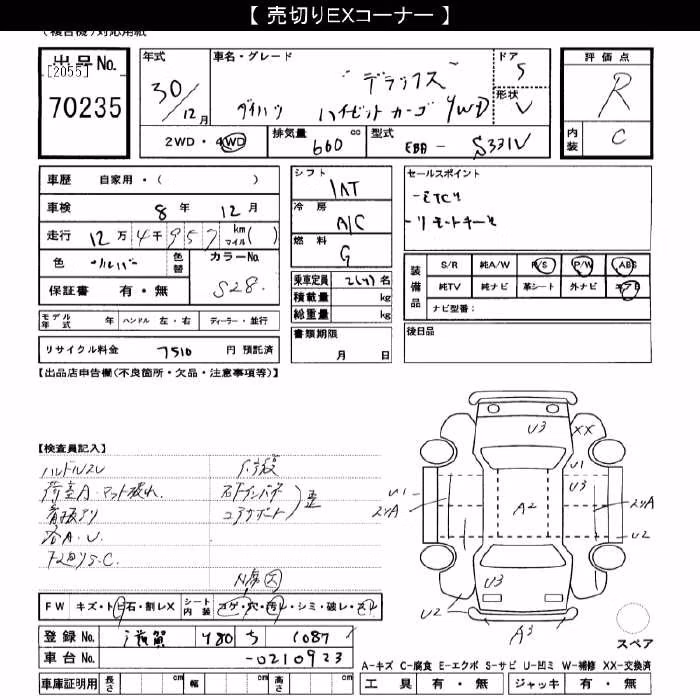 【 売切りEXコーナー 】
(複合機)対応用紙
出品No.
[2055]
70235
年式
30/12月
車名・グレード
デラックス
ダイハツ ハイゼットカーゴ 4WD
ドア 5
形状 V
2WD・4WD
排気量 660 cc
型式 EBD - S331V
評価点
R
内装 C
車歴 自家用・( )
車検 8年 12月
走行 12万4千957 km マイル( )
色 シルバー 色替
カラーNo. S28
保証書 有・無
モデル年式 年 ハンドル 左・右 ディーラー・並行
リサイクル料金 7510 円 預託済
シフト IAT
冷房 A/C
燃料 G
乗車定員 2(4)名
積載量 kg
総重量 kg
書類期限
月 日
セールスポイント
-ETC
-リモートキー
装備品
S/R 純A/W P/S P/W ABS
純TV 純ナビ 革シート 外ナビ エアB
ナビ型番:
後日品
【出品店申告欄(不良箇所・欠品・注意事項等)】
【検査員記入】
ハンドルスレ
荷室A・マット破れ
下回りS.C.
FW キズ・トビ石・割レX
シート内装 コゲ・穴・汚レ・シミ・破レ・スレ
登録No. 滋賀 480 ち 1087
車台No. -0210923
車庫証明用 長さ cm 幅 cm 高さ cm
U3
XX
U1
U3
U1
A2
U2
U3
U2
A3
スペア
A-キズ C-腐食 E-エクボ S-サビ U-凹ミ W-補修 XX-交換済
工具 有・無 ジャッキ 有・無